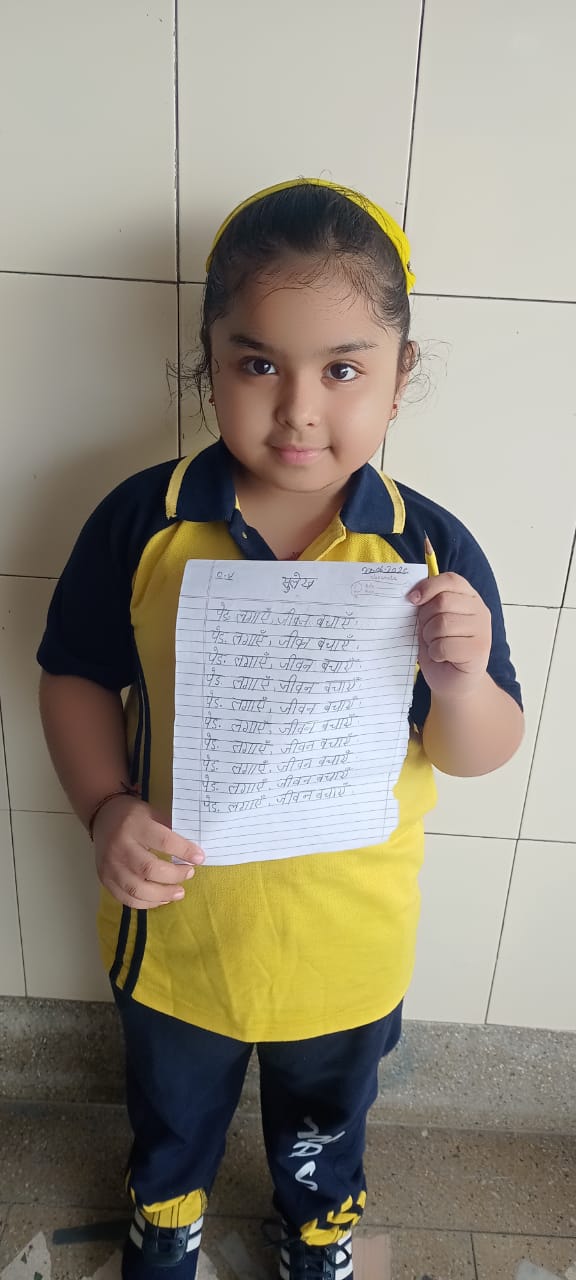 सुलेख
पेड़ लगाएँ, जीवन बचाएँ।
पेड़ लगाएँ, जीवन बचाएँ।
पेड़ लगाएँ, जीवन बचाएँ
पेड़ लगाएँ, जीवन बचाएँ
पेड़ लगाएँ, जीवन बचाएँ।
पेड़ लगाएँ, जीवन बचाएँ
पेड़ लगाएँ, जीवन बचाएँ
पेड़ लगाएँ, जीवन बचाएँ
पेड़ लगाएँ, जीवन बचाएँ
पेड़ लगाएँ, जीवन बचाएँ।